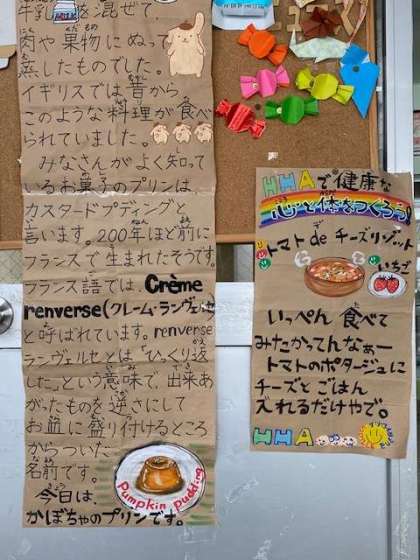 牛乳を混ぜて
肉や果物にぬって
蒸したものでした。
イギリスでは昔から
このような料理が食べ
られていました。
みなさんがよく知って
いるお菓子のプリンは
カスタードプディングと
言います。200年ほど前に
フランスで生まれたそうです。
フランス語では、Crème
renverse(クレーム・ランヴェルセ
と呼ばれています。renverse
ランヴェルセとは『ひっくり返
した』という意味で、出来あ
がったものを逆さにして
お皿に盛り付けるところ
からついた
名前です。
今日は、
かぼちゃのプリンです。
Pumpkin pudding
HHAで健康な
心と体をつくろう
トマト de チーズリゾット
いちご
いっぺん 食べて
みたかってんなぁー
トマトのポタージュに
チーズと ごはん
入れるだけやで。
HHA